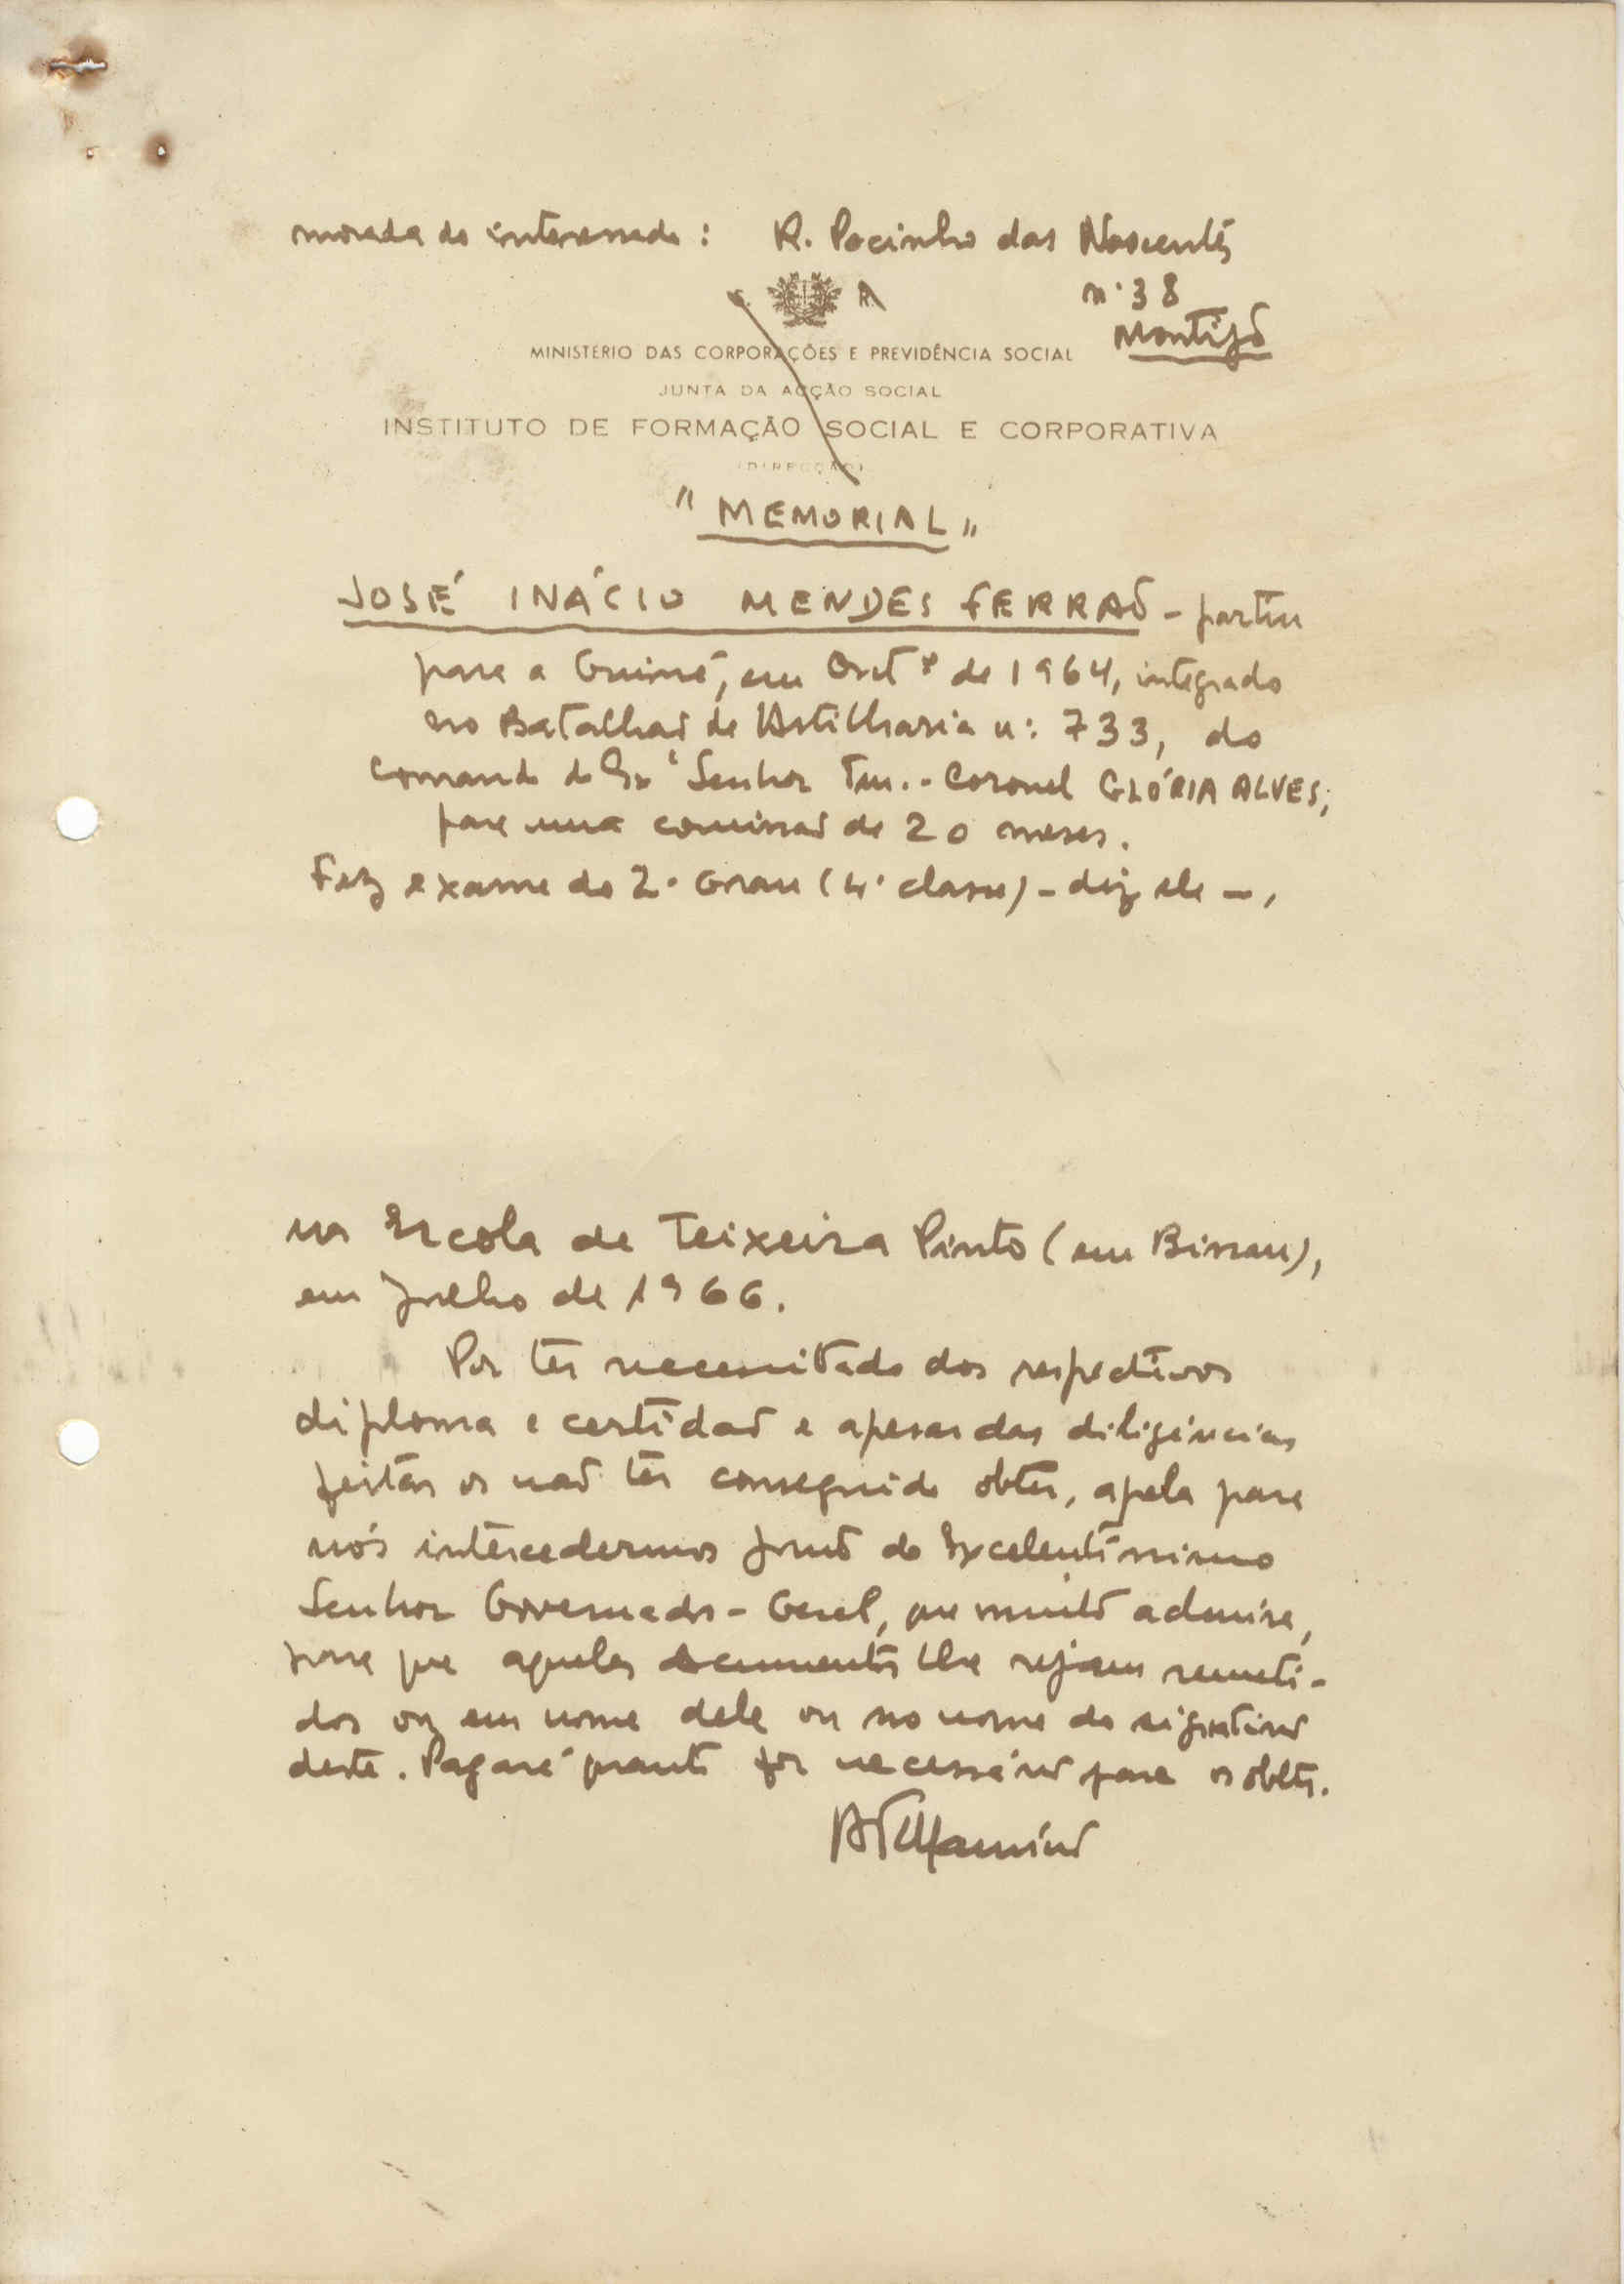 morada do interessado : R. Pocinho das Nascentes
n.º 38
Montijo
S. R.
MINISTÉRIO DAS CORPORAÇÕES E PREVIDÊNCIA SOCIAL
JUNTA DA ACÇÃO SOCIAL
INSTITUTO DE FORMAÇÃO SOCIAL E CORPORATIVA
(DIRECÇÃO)
"MEMORIAL"
JOSÉ INÁCIO MENDES FERRÃO - partiu
para a Guiné, em Outº de 1964, integrado
no Batalhão de Artilharia n: 733, do
comando do Exº Senhor Ten.-Coronel GLÓRIA ALVES;
para uma comissão de 20 meses.
Fez exame do 2.º Grau (4.ª classe) - diz ele -,
na Escola de Teixeira Pinto (em Bissau),
em Julho de 1966.
Por ter necessitado dos respectivos
diploma e certidão e apesar das diligências
feitas os não ter conseguido obter, apela para
nós intercedermos junto do Excelentíssimo
Senhor Governador-Geral, que muito admira,
para que aqueles documentos lhe sejam remeti-
dos ou em nome dele ou no nome do signatário
deste. Pagará quanto for necessário para os obter.